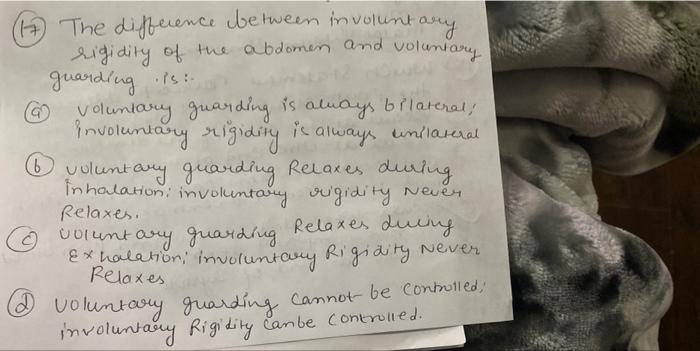 (17) The difference between involuntary
rigidity of the abdomen and voluntary
guarding is:-
(a) voluntary guarding is always bilateral;
involuntary rigidity is always unilateral
(b) voluntary guarding Relaxes during
inhalation; involuntary rigidity Never
Relaxes.
(c) voluntary guarding Relaxes during
Exhalation; involuntary Rigidity Never
Relaxes
(d) voluntary guarding cannot be controlled;
involuntary Rigidity can be controlled.